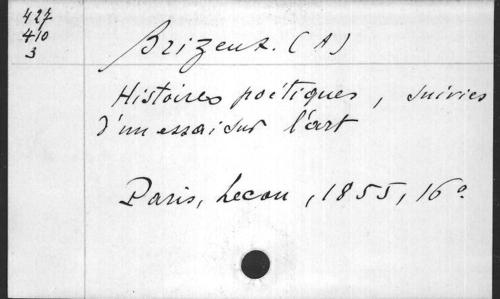 427
410
3
Brizeux. (A)
Histoires poétiques, suivies
d'un essai sur l'art
Paris, Lecou, 1855, 16º